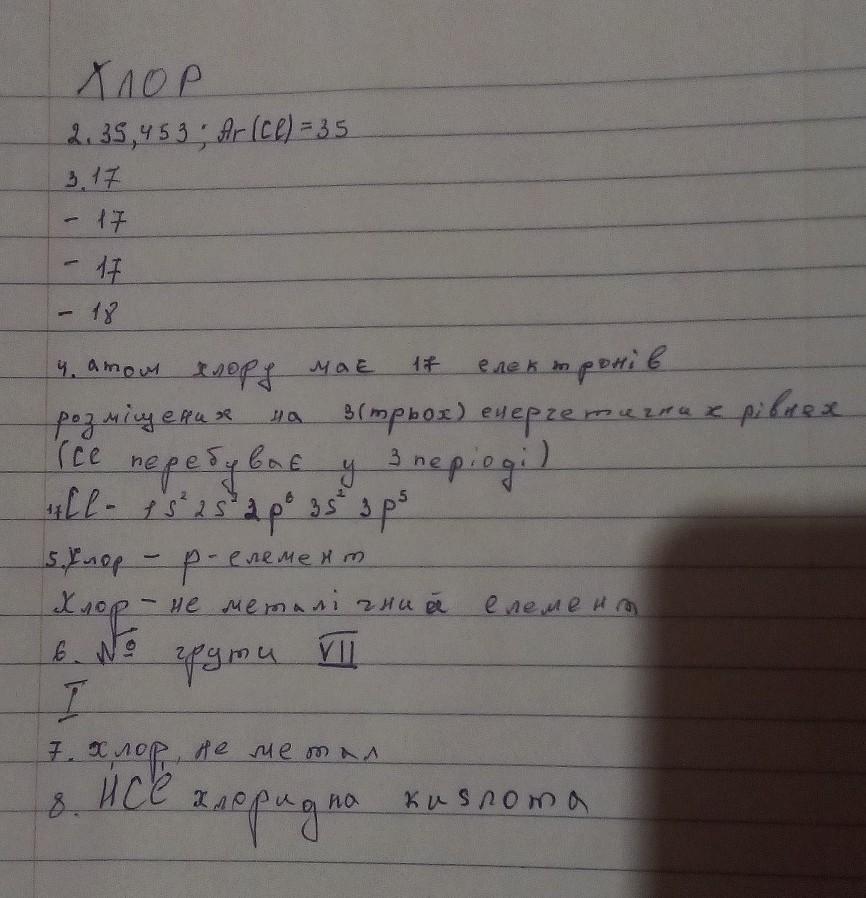 Хлор
2. 35,453; Ar(Cl)=35
3. 17
- 17
- 17
- 18
4. атом хлору має 17 електронів
розміщених на 3(трьох) енергетичних рівнях
(Cl перебуває у 3 періоді)
17Cl - 1s² 2s² 2p⁶ 3s² 3p⁵
5. Хлор - p-елемент
Хлор - не металічний елемент
6. № групи VII
I
7. хлор, не метал
8. HCl хлоридна кислота